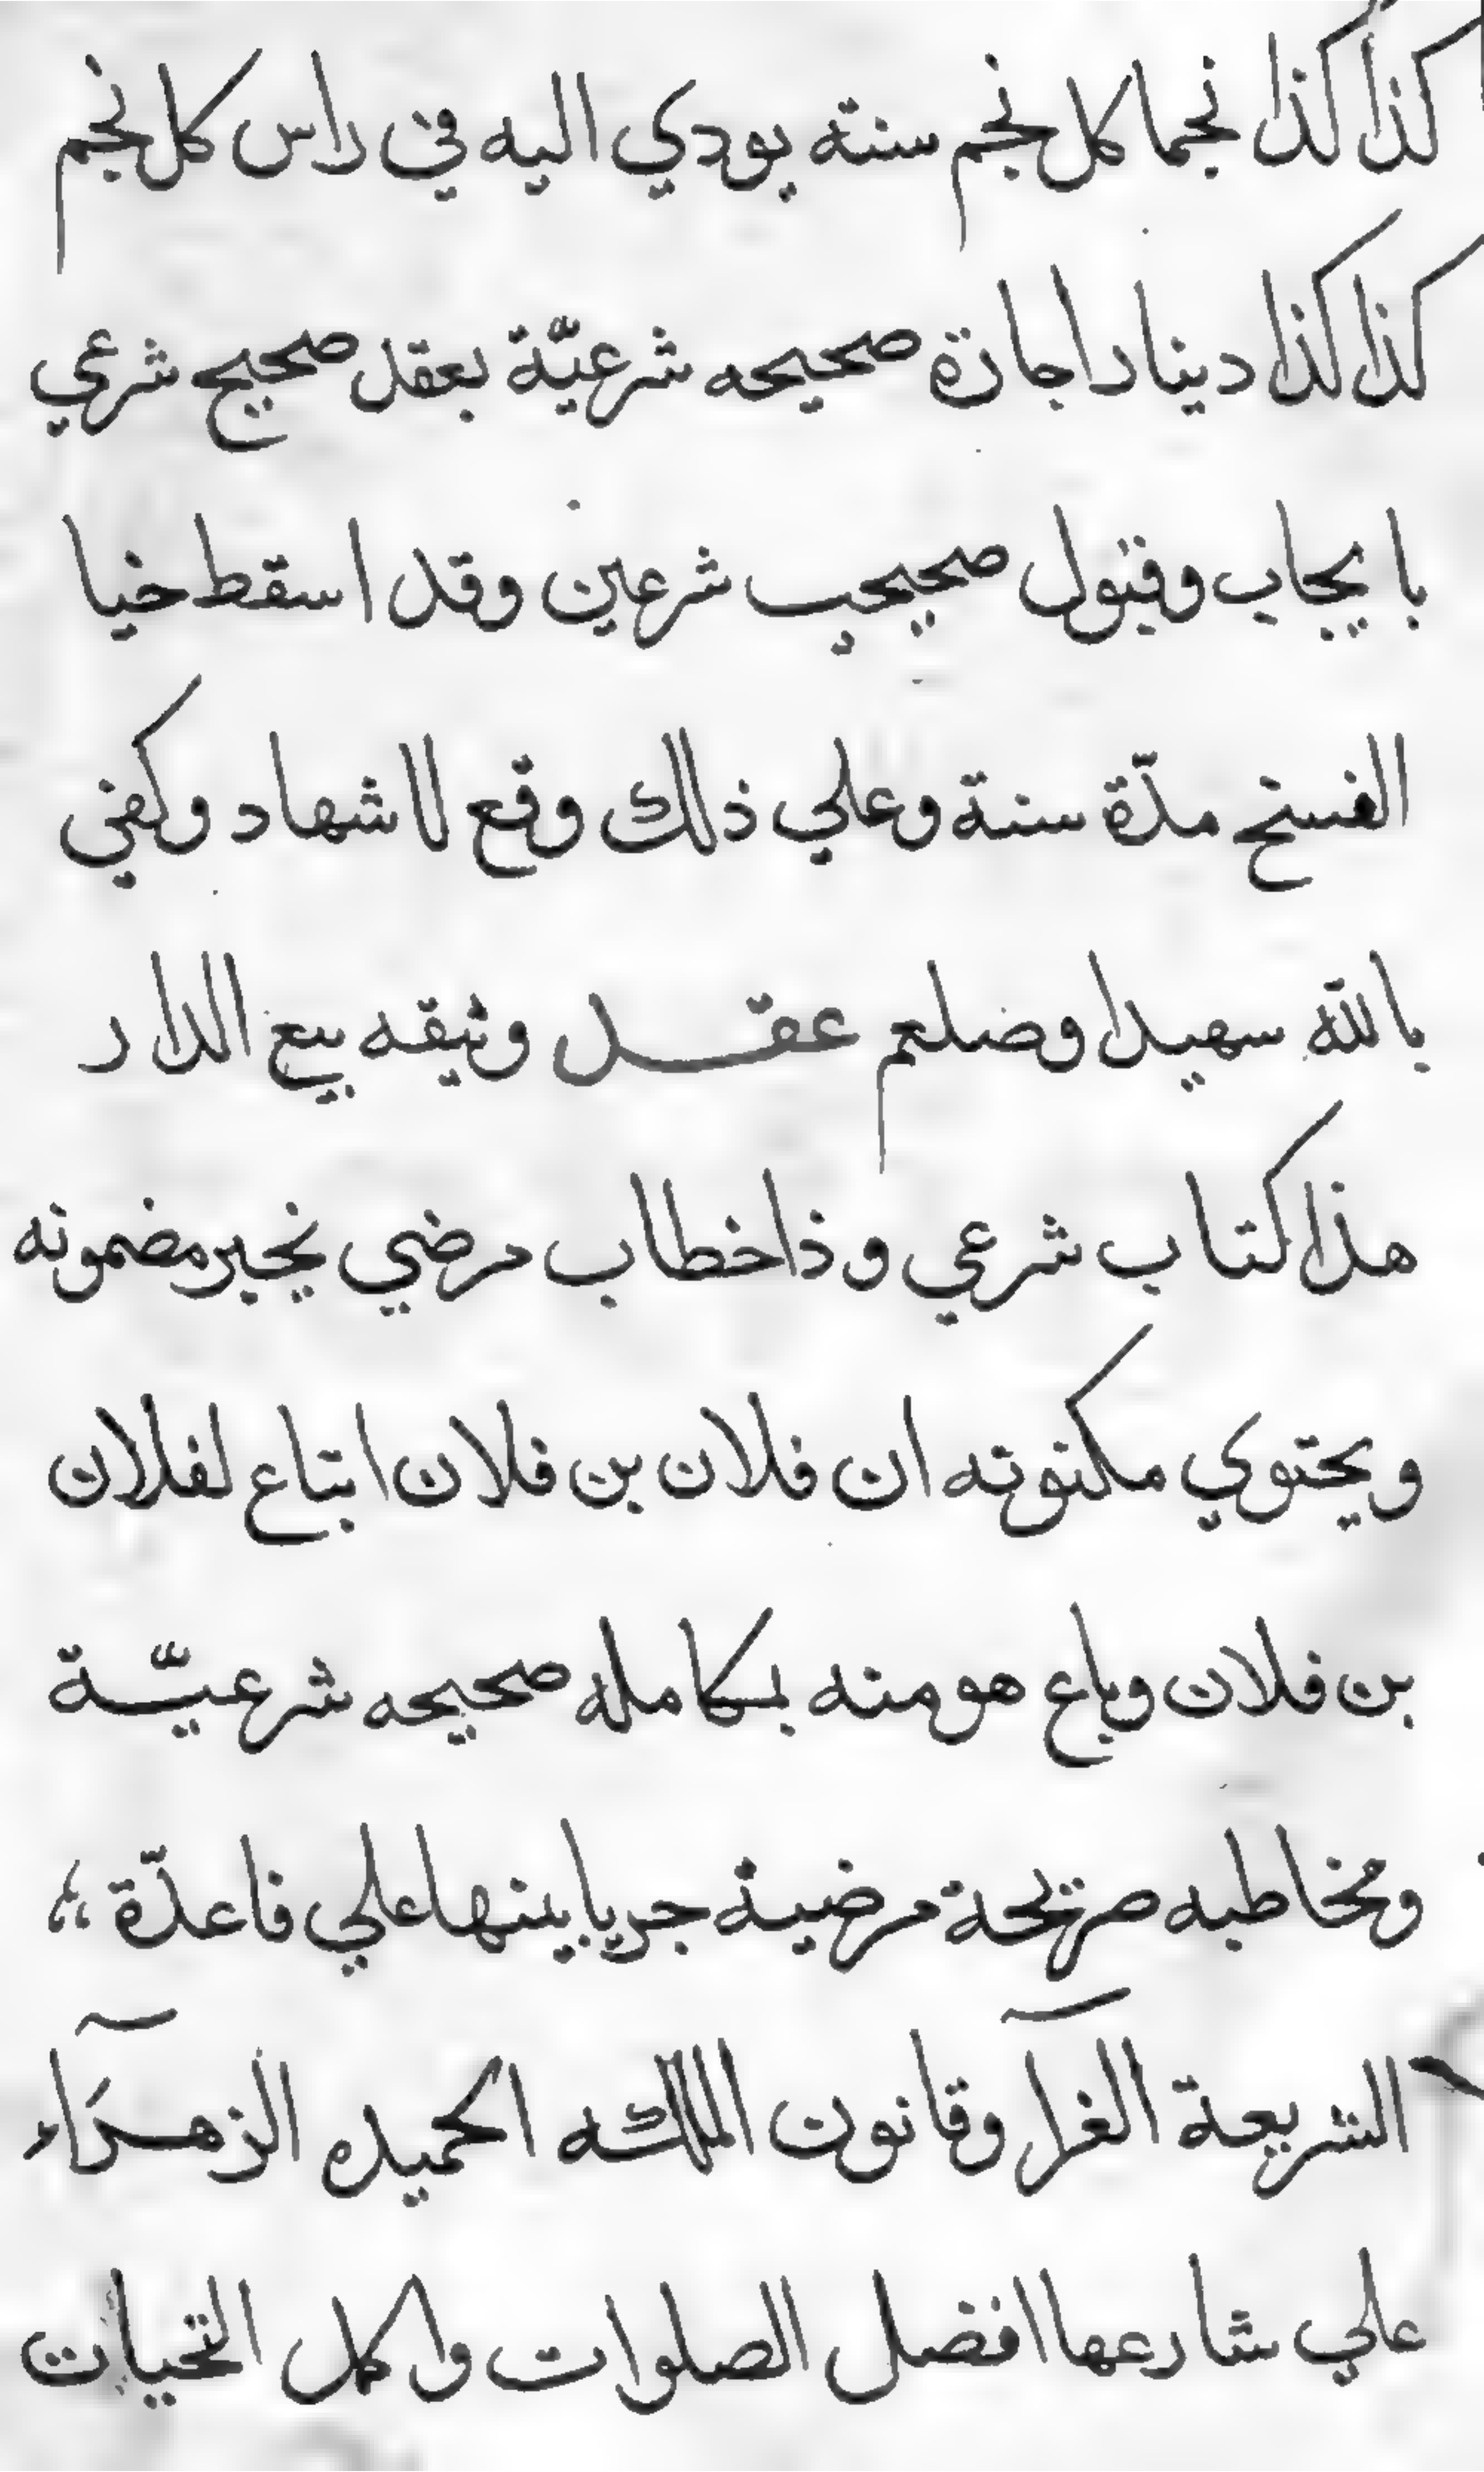 كذا كذا نجما كل نجم سنة يودي اليه في راس كل نجم
كذا كذا دينارا جازة صحيحه شرعيّة بعقل صحيح شرعي
با يجاب وقبول صحيحب شرعين وقد اسقط خيا
الفسخ مدّة سنة وعلي ذلك وقع للاشهاد وكفي
بالله سهيدا وضلعم عقل وثيقه بيع الدار
هذا كتاب شرعي وذا خطاب مرضي نخبر مضمونه
ويحتوي مكنوته ان فلان بن فلان ابتاع لفلان
بن فلان وباع هو منه بمكامله صحيحه شرعيّة
ومخاطبه صريحة مرضية جريا بينها علي قاعدّة
الشريعة الغرآ وقانون الملكه الحميده الزهرآء
علي شارعها افضل الصلوات واكمل التحيات